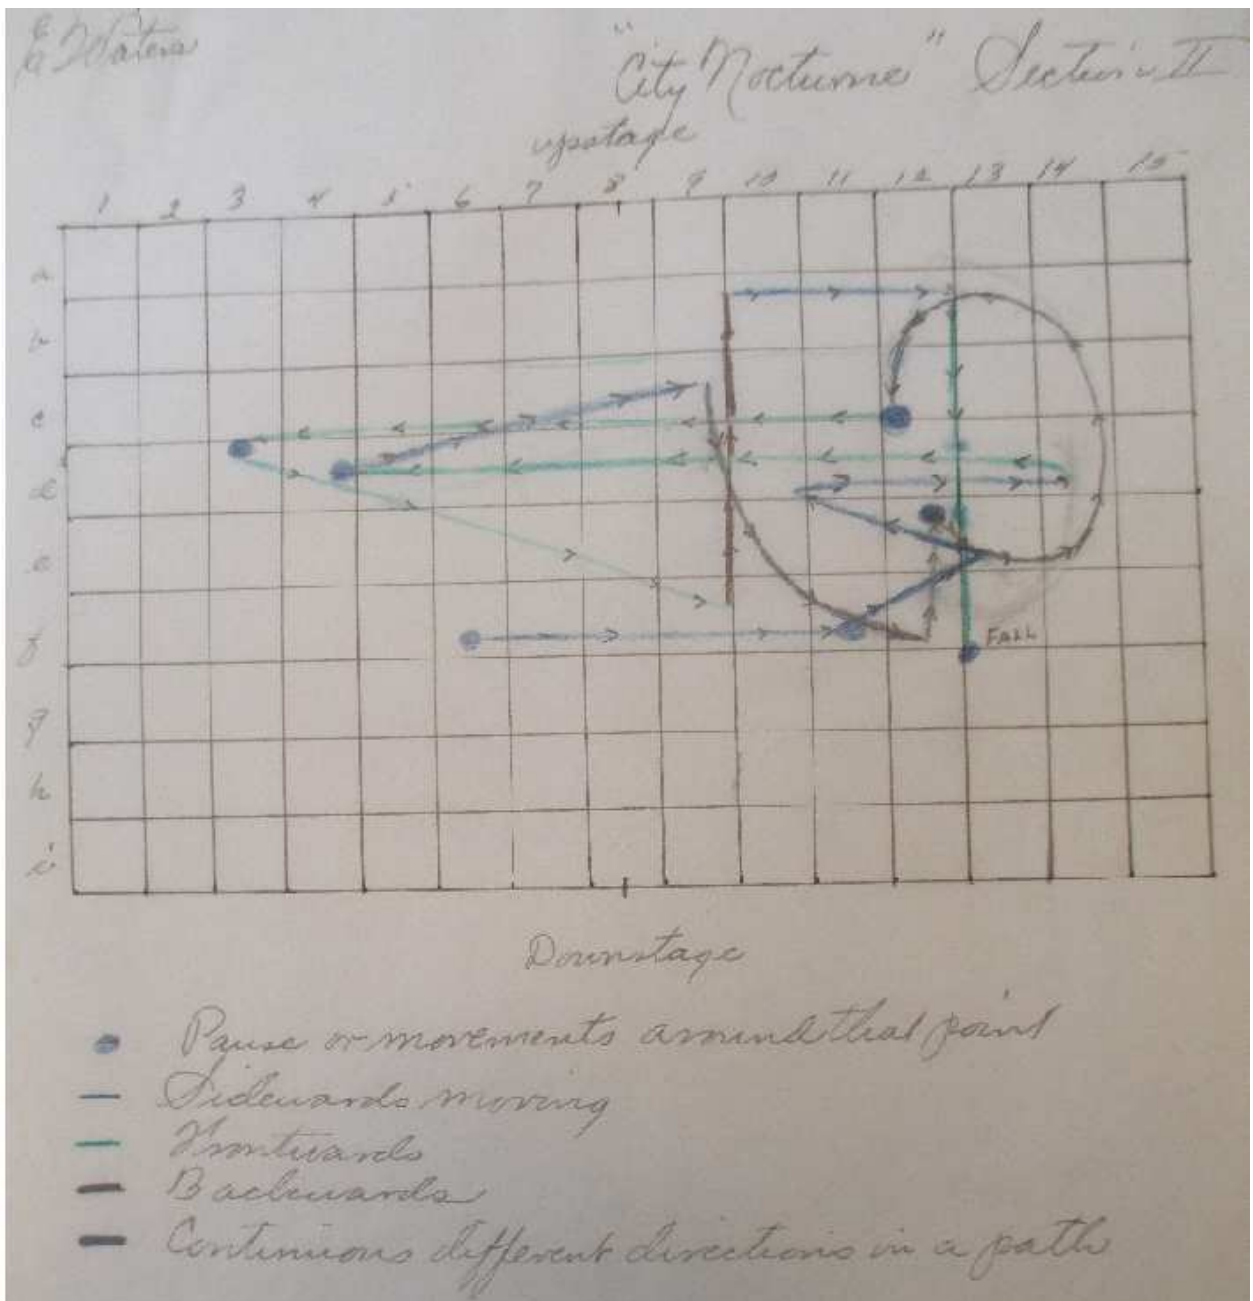 E. Waters
"City Nocturne" Section II
upstage
1 2 3 4 5 6 7 8 9 10 11 12 13 14 15
a
b
c
d
e
f
FALL
g
h
i
Downstage
Pause or movements around that point
Sidewards moving
Frontwards
Backwards
Continuous different directions in a path